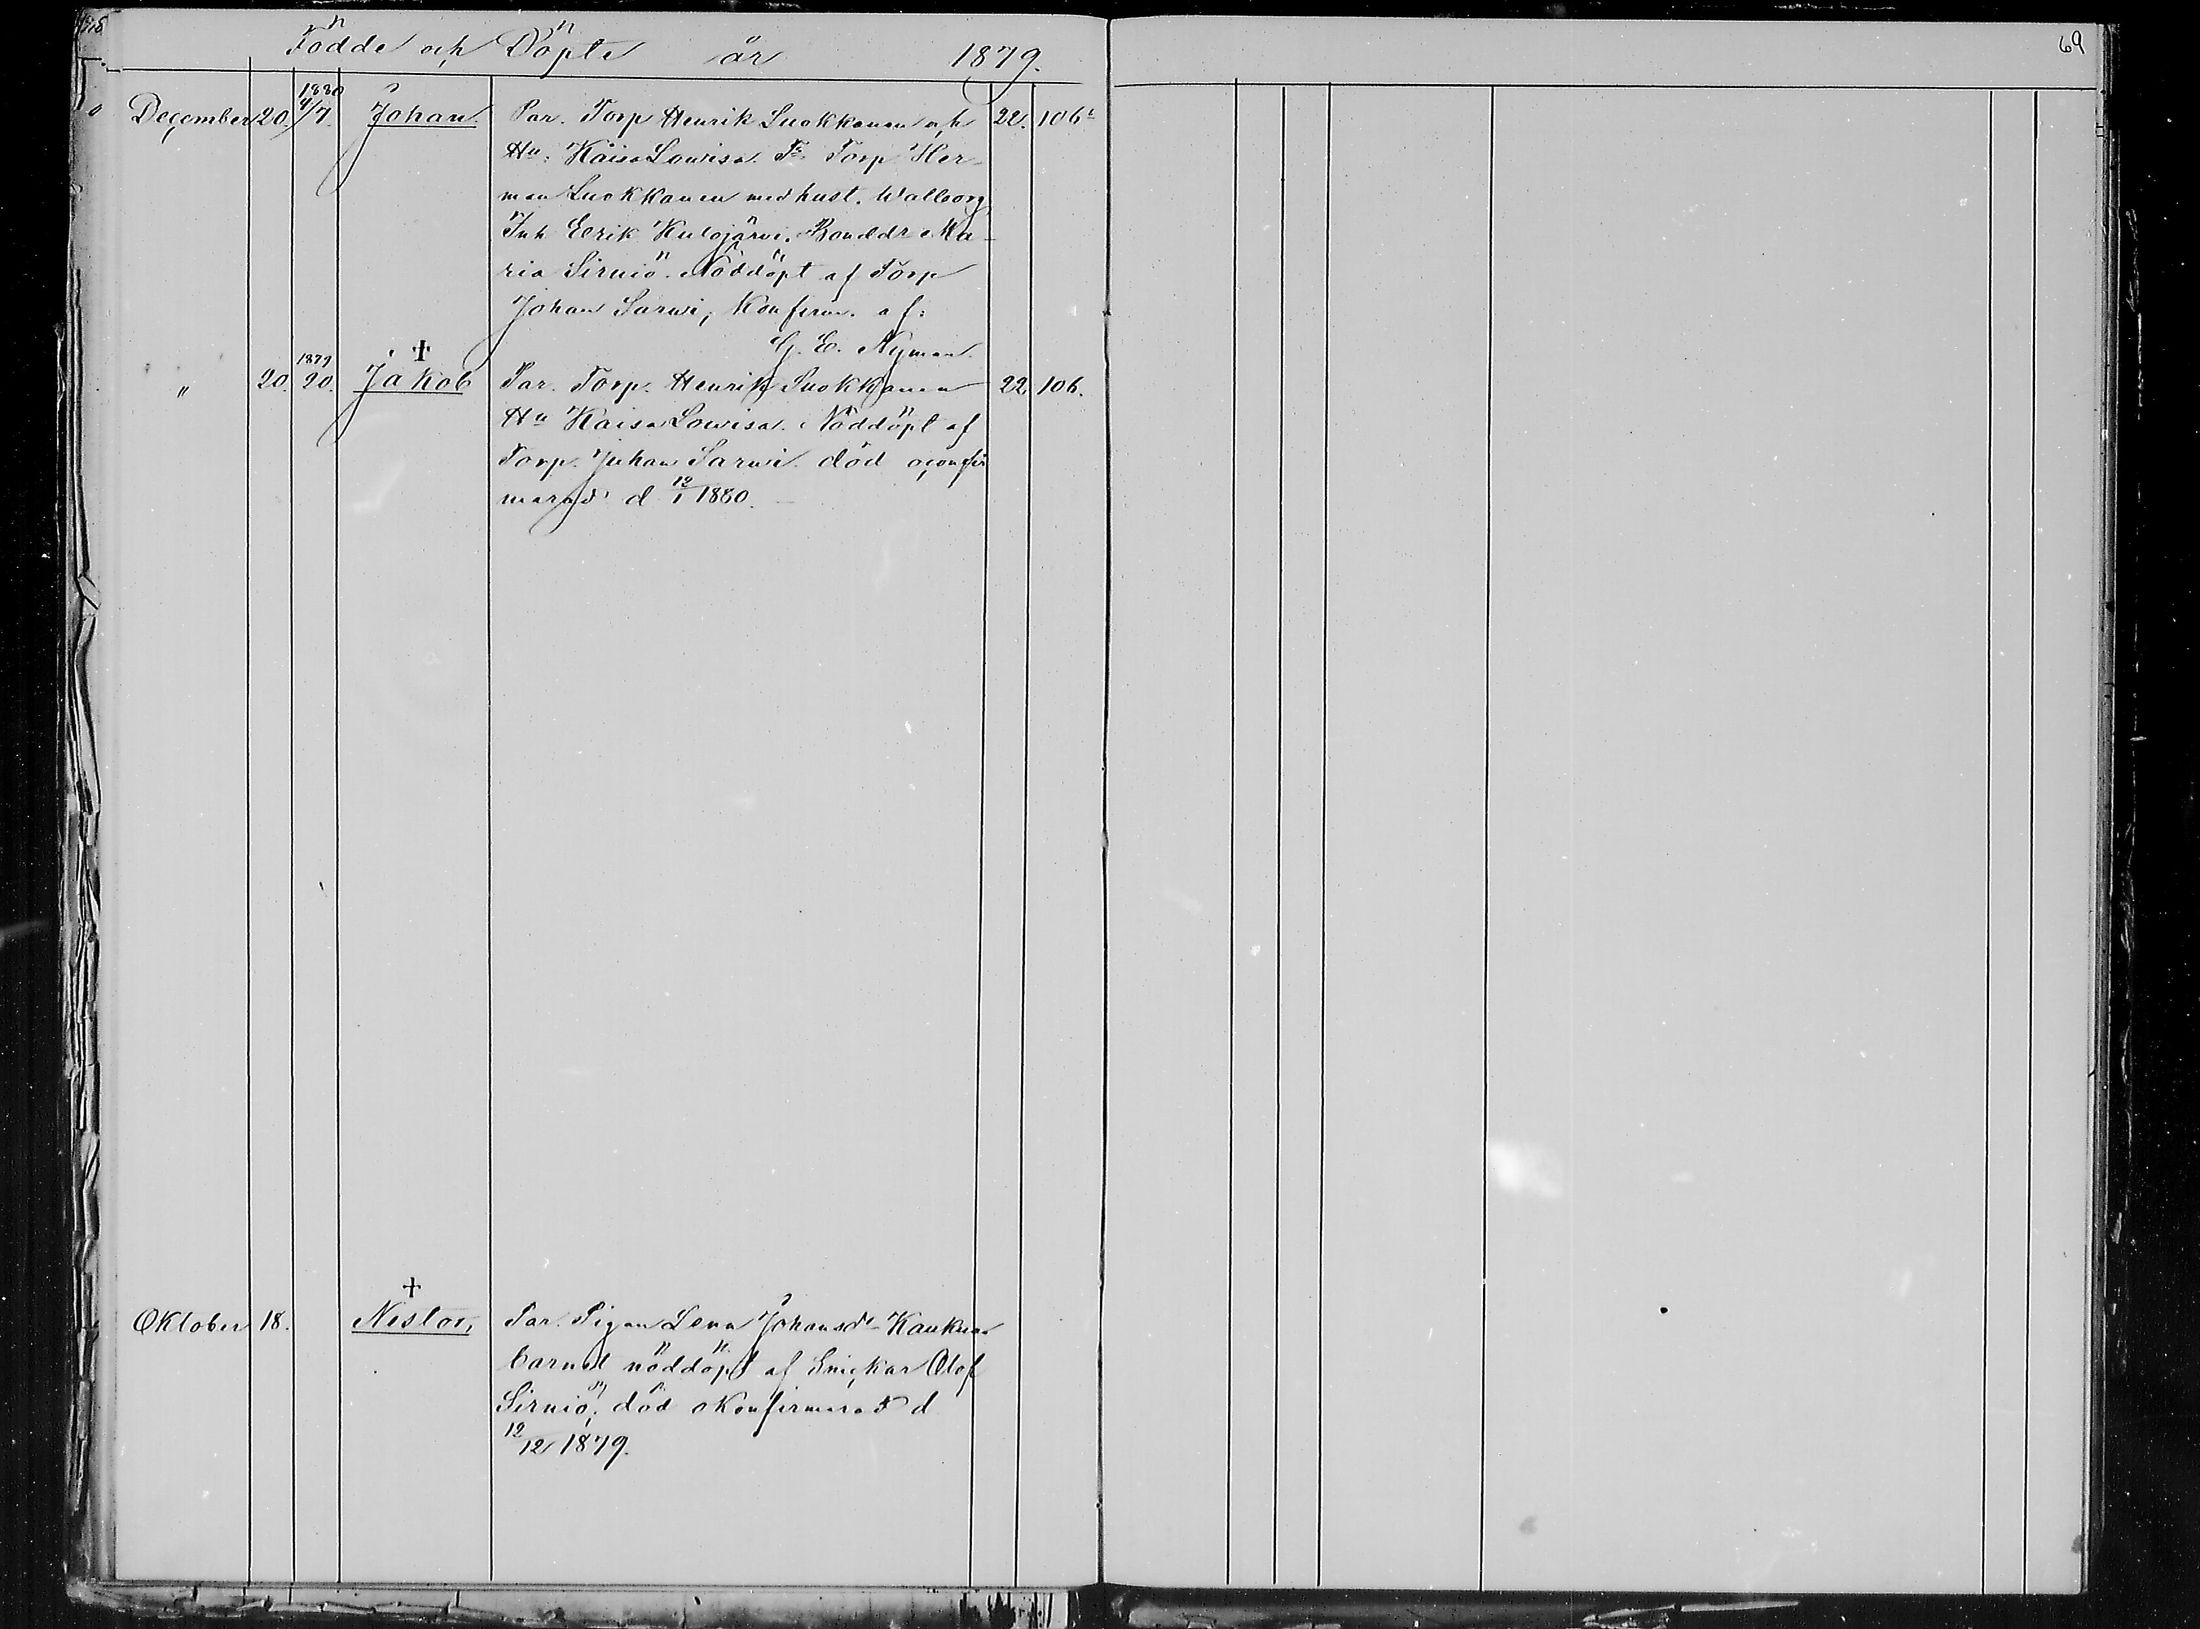 Födde och Döpte år 1879.
69
December 20. 1880 4/7. Johan. Par. Torp Henrik Suokkanen och 22. 106
Hu: Kaisa Lowisa. Fr. Torp Her-
man Suokkanen med hust. Walborg
Inh Eerik Kulojärvi. Bondedr Ma-
ria Sirniö. Nöddöpt af Torp
Johan Sarwi, Konfirm. af:
G. E. Nyman.
" 20. 1879 20. † Jakob Par. Torp. Henrik Suokkanen 22 106.
Hu Kaisa Lowisa. Nöddöpt af
Torp. Johan Sarwi. död oconfir
merad d 12/1 1880.
Oktober 18. † Nestor, Par. Pigan Lena Johansdr
barnet nöddöpt af Snickar Olof
Sirniö, död okonfirmerad d
12/12 1879.